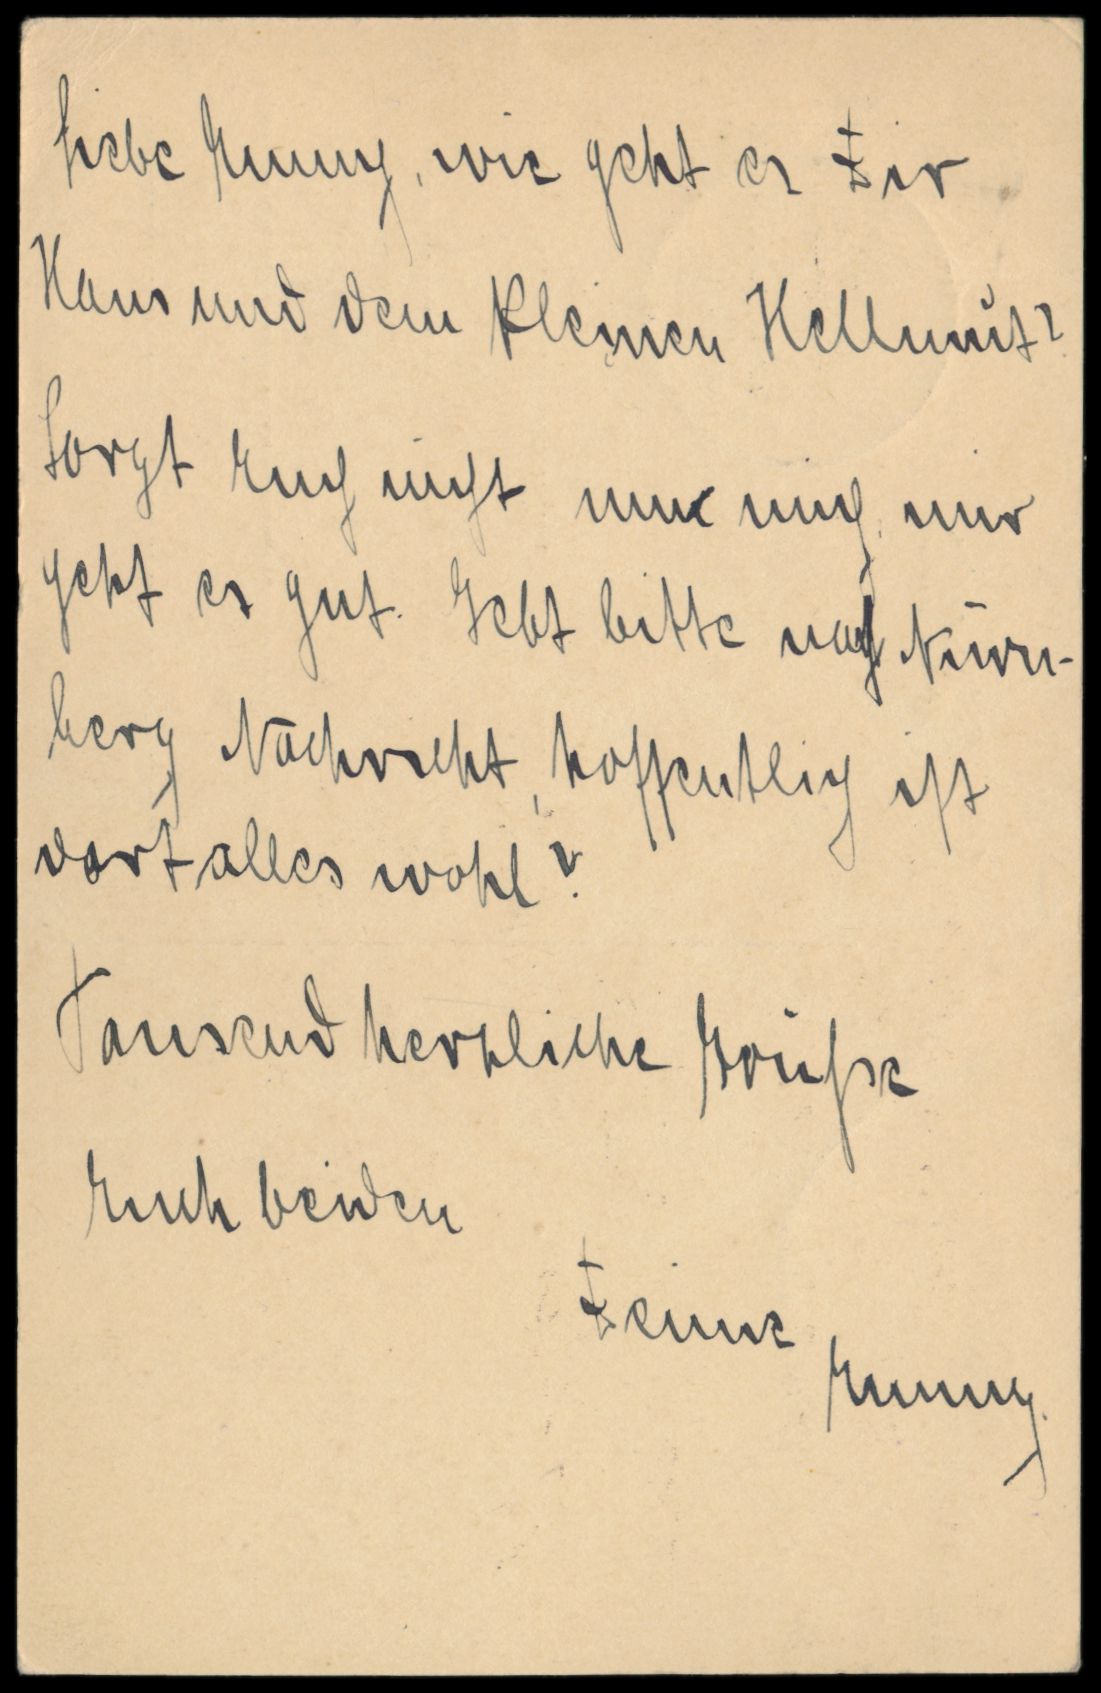 Liebe Emmy, wie geht es Dir
Hans und dem kleinen Hellmut?
Sorgt Euch nicht um mich, mir
geht es gut. Gebt bitte nach Nürn-
berg Nachricht, hoffentlich ist
dort alles wohl?
Tausend herzliche Grüße
Euch beiden
Deine
Emmy.